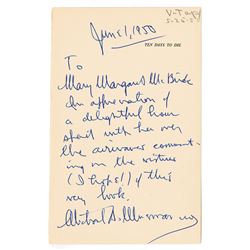 V-Tapy
5-26-5
June 1, 1950
TEN DAYS TO DIE
To
Mary Margaret McBride
In appreciation of
a delightful hour
spent with her over
the airwaves comment-
ing on the virtues
(I hope!) of this
very book.
Michael A. Musmanno